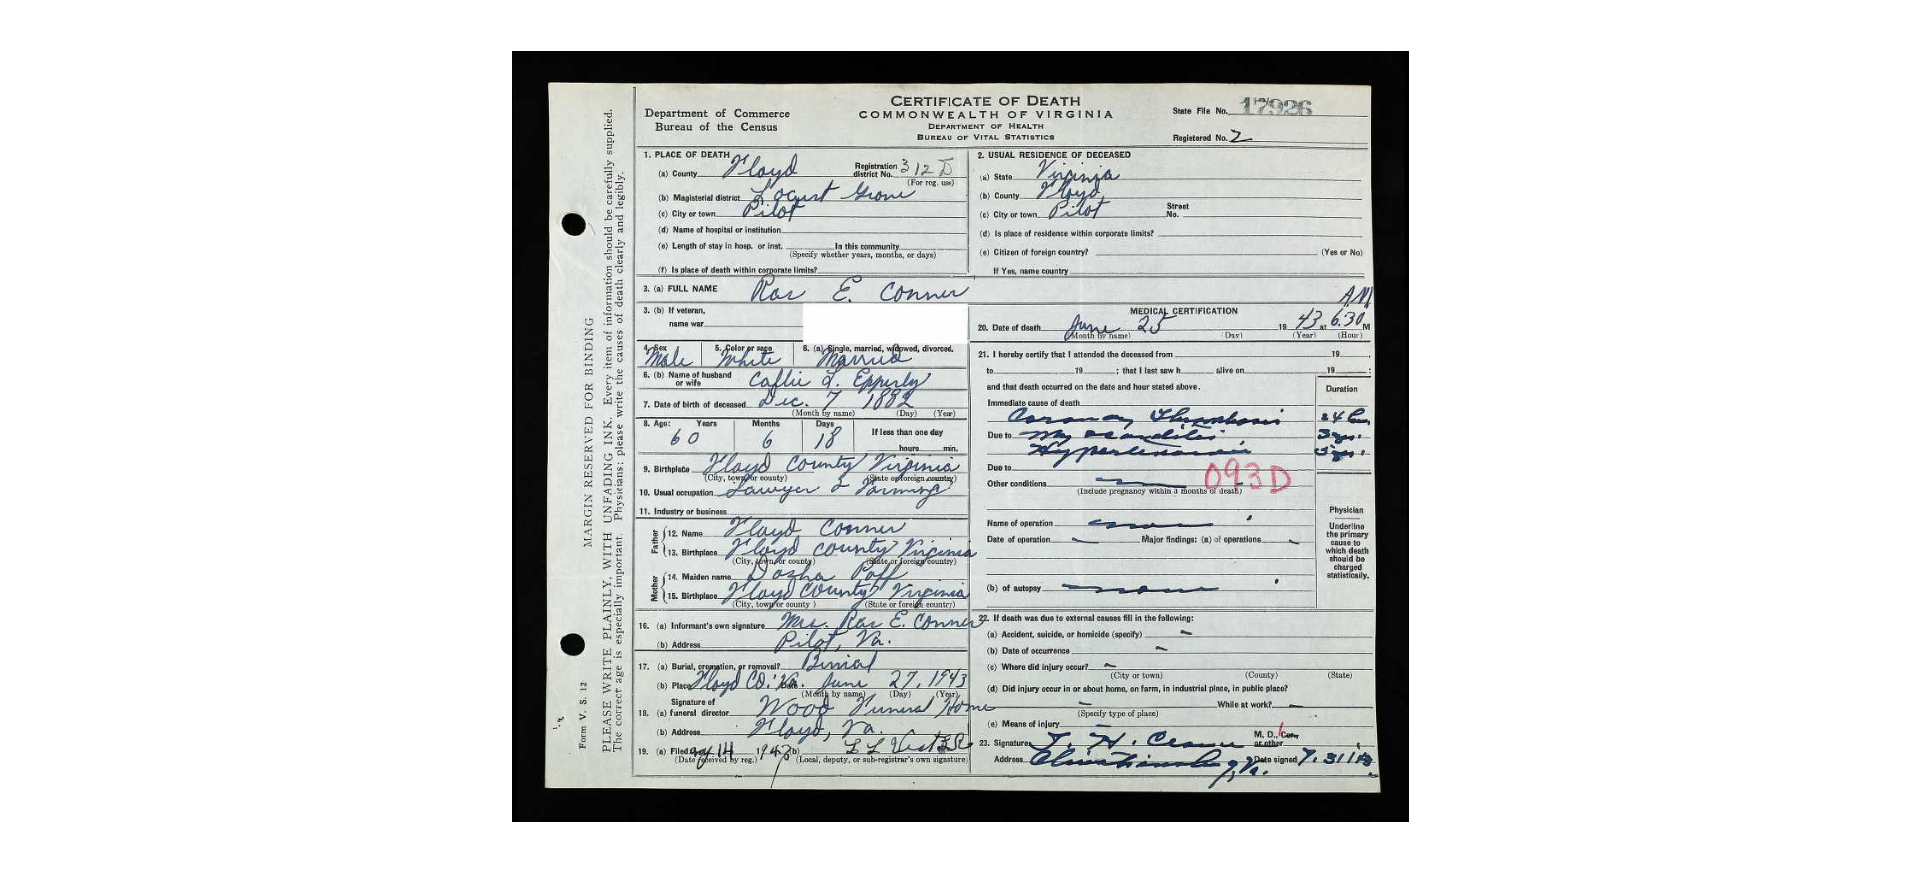 CERTIFICATE OF DEATH
COMMONWEALTH OF VIRGINIA
DEPARTMENT OF HEALTH
BUREAU OF VITAL STATISTICS
Department of Commerce
Bureau of the Census
State File No. 17926
Registered No. 2
MARGIN RESERVED FOR BINDING
PLEASE WRITE PLAINLY, WITH UNFADING INK. Every item of information should be carefully supplied.
The correct age is especially important. Physicians: please write the causes of death clearly and legibly.
Form V. S. 12
1. PLACE OF DEATH
(a) County Floyd Registration district No. 312 D
(For reg. use)
(b) Magisterial district Locust Grove
(c) City or town Pilot
(d) Name of hospital or institution
(e) Length of stay in hosp. or inst. In this community
(Specify whether years, months, or days)
(f) Is place of death within corporate limits?
2. USUAL RESIDENCE OF DECEASED
(a) State Virginia
(b) County Floyd
(c) City or town Pilot Street No.
(d) Is place of residence within corporate limits?
(e) Citizen of foreign country? (Yes or No)
If Yes, name country
3. (a) FULL NAME E. Conner
3. (b) If veteran,
name war
4. Sex Male 5. Color or race White 6. (a) Single, married, widowed, divorced. Married
6. (b) Name of husband or wife Callie L. Epperly
7. Date of birth of deceased Dec. 7 1882
(Month by name) (Day) (Year)
8. Age: Years 60 Months 6 Days 18 If less than one day
hours min.
9. Birthplace Floyd County Virginia
(City, town or county) (State or foreign country)
10. Usual occupation Lawyer & Farming
11. Industry or business
Father
12. Name Floyd Conner
13. Birthplace Floyd County Virginia
(City, town or county) (State or foreign country)
Mother
14. Maiden name Poff
15. Birthplace Floyd County Virginia
(City, town or county) (State or foreign country)
16. (a) Informant's own signature Mrs. E. Conner
(b) Address Pilot, Va.
17. (a) Burial, cremation, or removal? Burial
(b) Place Floyd Co. Va. Date June 27, 1943
(Month by name) (Day) (Year)
18. (a) Signature of funeral director Wood Funeral Home
(b) Address Floyd, Va.
19. (a) Filed 14 1943 (b) L L
(Date received by reg.) (Local, deputy, or sub-registrar's own signature)
MEDICAL CERTIFICATION
20. Date of death June 25 1943 at 6:30 AM
(Month by name) (Day) (Year) (Hour)
21. I hereby certify that I attended the deceased from 19
to 19 ; that I last saw h alive on 19 ;
and that death occurred on the date and hour stated above.
Duration
Immediate cause of death
Coronary Thrombosis 24
Due to Myocarditis 3 yrs.
Hypertension 3 yrs.
Due to
093D
Other conditions
(Include pregnancy within 3 months of death)
Name of operation none
Date of operation - Major findings: (a) of operations -
(b) of autopsy none
Physician
Underline the primary cause to which death should be charged statistically.
22. If death was due to external causes fill in the following:
(a) Accident, suicide, or homicide (specify) -
(b) Date of occurrence -
(c) Where did injury occur? -
(City or town) (County) (State)
(d) Did injury occur in or about home, on farm, in industrial place, in public place?
- While at work? -
(Specify type of place)
(e) Means of injury -
23. Signature M. D., or other
Address Christiansburg, Va. Date signed 7.31.43